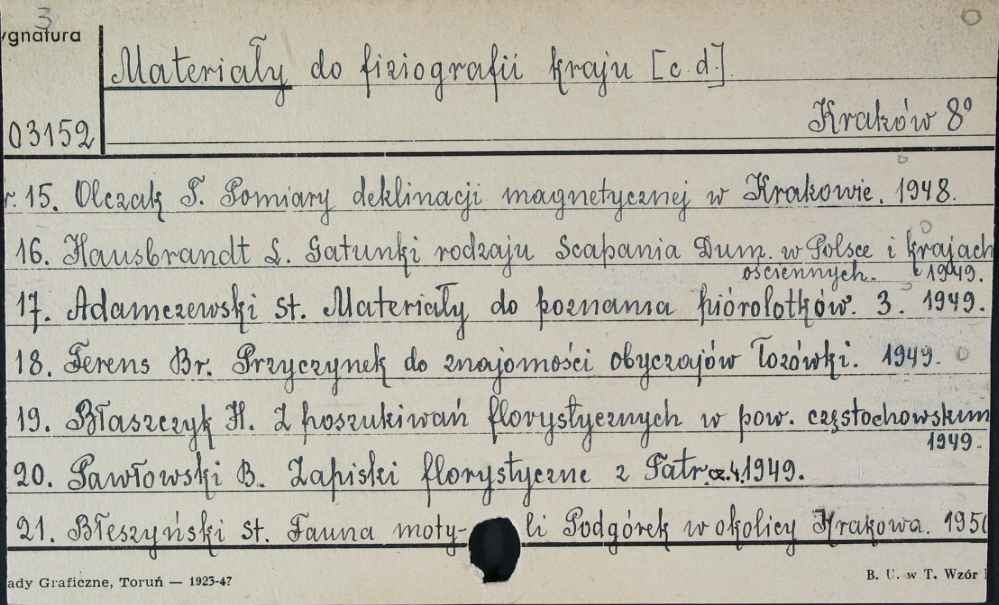 3
ygnatura
Materiały do fiziografii kraju [c.d.]
03152
Kraków 8°
r. 15. Olczak T. Pomiary deklinacji magnetycznej w Krakowie. 1948.
16. Hausbrandt L. Gatunki rodzaju Scapania Dum. w Polsce i krajach
ościennych. 1949.
17. Adamczewski St. Materiały do poznania piórolotków. 3. 1949.
18. Ferens Br. Przyczynek do znajomości obyczajów łozówki. 1949.
19. Błaszczyk H. Z poszukiwań florystycznych w pow. częstochowskum
1949.
20. Pawłowski B. Zapiski florystyczne z Tatr cz.4. 1949.
21. Błeszyński St. Fauna moty- li Podgórek w okolicy Krakowa. 1950
ady Graficzne, Toruń — 1923-47
B. U. w T. Wzór